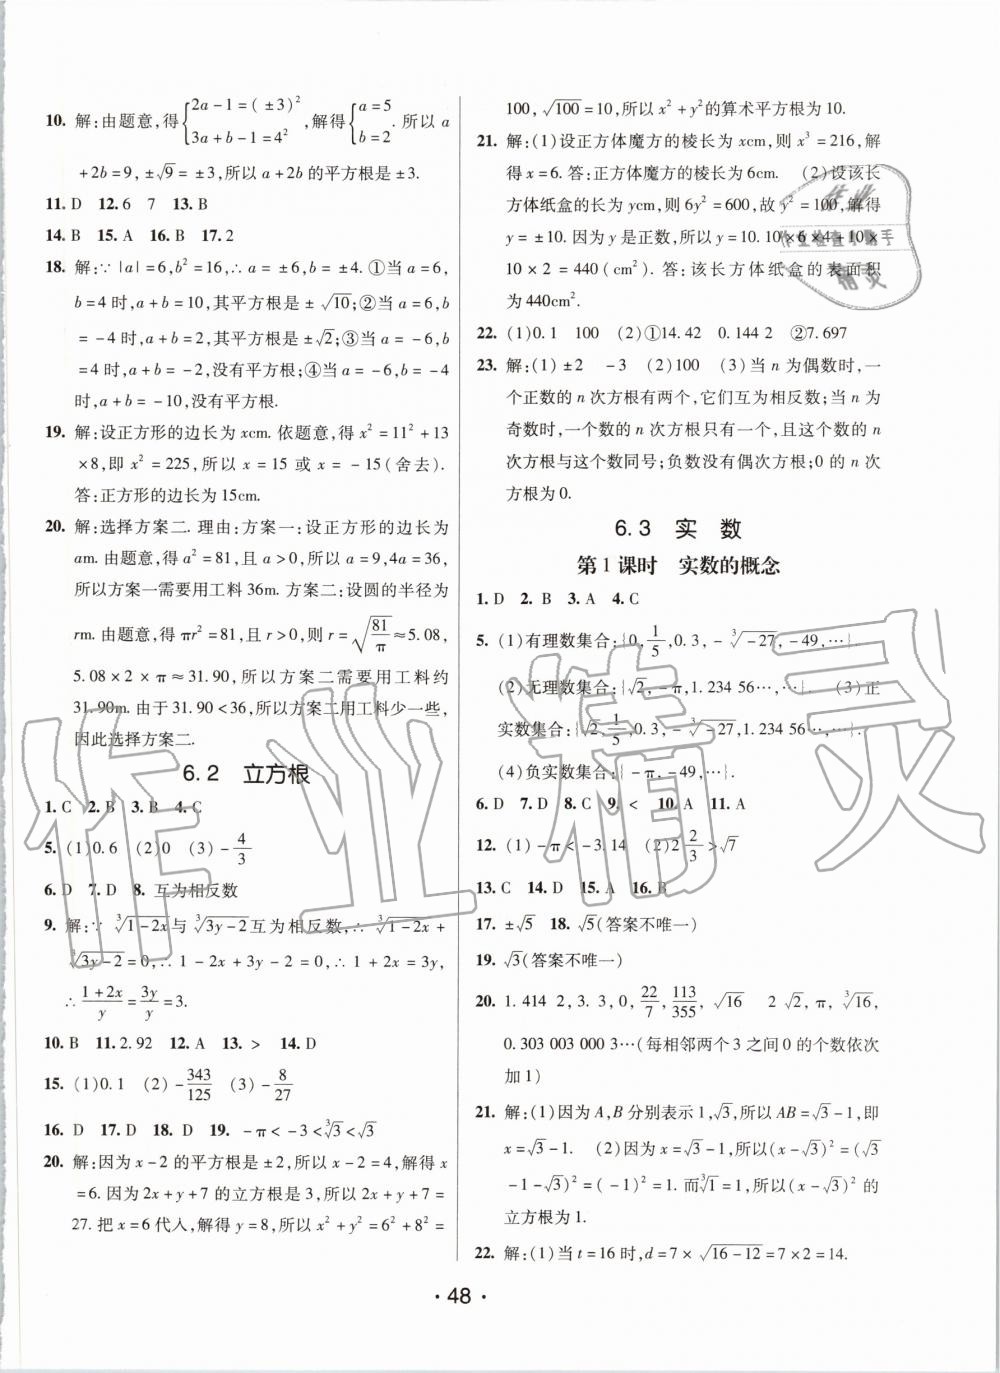 10. 解:由题意,得{2a-1=(±3)², 3a+b-1=4², 解得{a=5, b=2. 所以 a
+2b=9, ±√9=±3,所以 a+2b 的平方根是±3.
11. D 12. 6 7 13. B
14. B 15. A 16. B 17. 2
18. 解:∵|a|=6,b²=16,∴a=±6,b=±4. ①当 a=6,
b=4 时,a+b=10,其平方根是±√10;②当 a=6,b=
-4 时,a+b=2,其平方根是±√2;③当 a=-6,b
=4 时,a+b=-2,没有平方根;④当 a=-6,b=-4
时,a+b=-10,没有平方根.
19. 解:设正方形的边长为 xcm. 依题意,得 x²=11²+13
×8,即 x²=225,所以 x=15 或 x=-15(舍去).
答:正方形的边长为 15cm.
20. 解:选择方案二. 理由:方案一:设正方形的边长为
am. 由题意,得 a²=81,且 a>0,所以 a=9,4a=36,
所以方案一需要用工料 36m. 方案二:设圆的半径为
rm. 由题意,得 πr²=81,且 r>0,则 r=√(81/π)≈5.08,
5.08×2×π≈31.90,所以方案二需要用工料约
31.90m. 由于 31.90<36,所以方案二用工料少一些,
因此选择方案二.
6.2 立方根
1. C 2. B 3. B 4. C
5. (1)0.6 (2)0 (3)-4/3
6. D 7. D 8. 互为相反数
9. 解:∵∛(1-2x)与∛(3y-2)互为相反数,∴∛(1-2x)+
∛(3y-2)=0,∴1-2x+3y-2=0,∴1+2x=3y,
∴(1+2x)/y=3y/y=3.
10. B 11. 2.92 12. A 13. > 14. D
15. (1)0.1 (2)-343/125 (3)-8/27
16. D 17. D 18. D 19. -π<-3<∛3<√3
20. 解:因为 x-2 的平方根是±2,所以 x-2=4,解得 x
=6. 因为 2x+y+7 的立方根是 3,所以 2x+y+7=
27. 把 x=6 代人,解得 y=8,所以 x²+y²=6²+8²=
100,√100=10,所以 x²+y² 的算术平方根为 10.
21. 解:(1)设正方体魔方的棱长为 xcm,则 x³=216,解
得 x=6. 答:正方体魔方的棱长为 6cm. (2)设该长
方体纸盒的长为 ycm,则 6y²=600,故 y²=100,解得
y=±10. 因为 y 是正数,所以 y=10. 10×6×4+10×
10×2=440(cm²). 答:该长方体纸盒的表面积
为 440cm².
22. (1)0.1 100 (2)①14.42 0.144 2 ②7.697
23. 解:(1)±2 -3 (2)100 (3)当 n 为偶数时,一
个正数的 n 次方根有两个,它们互为相反数;当 n 为
奇数时,一个数的 n 次方根只有一个,且这个数的 n
次方根与这个数同号;负数没有偶次方根;0 的 n 次
方根为 0.
6.3 实 数
第1课时 实数的概念
1. D 2. B 3. A 4. C
5. (1)有理数集合:{0,1/5,0.3,-∛-27,-49,…}.
(2)无理数集合:{√2,-π,1.234 56…,…}. (3)正
实数集合:{√2,1/5,0.3,-∛-27,1.234 56…,…}.
(4)负实数集合:{-π,-49,…}.
6. D 7. D 8. C 9. < 10. A 11. A
12. (1)-π<-3.14 (2)2 2/3>√7
13. C 14. D 15. A 16. B
17. ±√5 18. √5(答案不唯一)
19. √3(答案不唯一)
20. 1.414 2,3.3,0,22/7,113/355,√16 2√2,π,∛16,
0.303 003 000 3…(每相邻两个 3 之间 0 的个数依次
加 1)
21. 解:(1)因为 A,B 分别表示 1,√3,所以 AB=√3-1,即
x=√3-1. (2)因为 x=√3-1,所以(x-√3)²=(√3
-1-√3)²=(-1)²=1. 而∛1=1,所以(x-√3)² 的
立方根为 1.
22. 解:(1)当 t=16 时,d=7×√(16-12)=7×2=14.
· 48 ·
作业精灵
作业
作业检查小助手
精灵